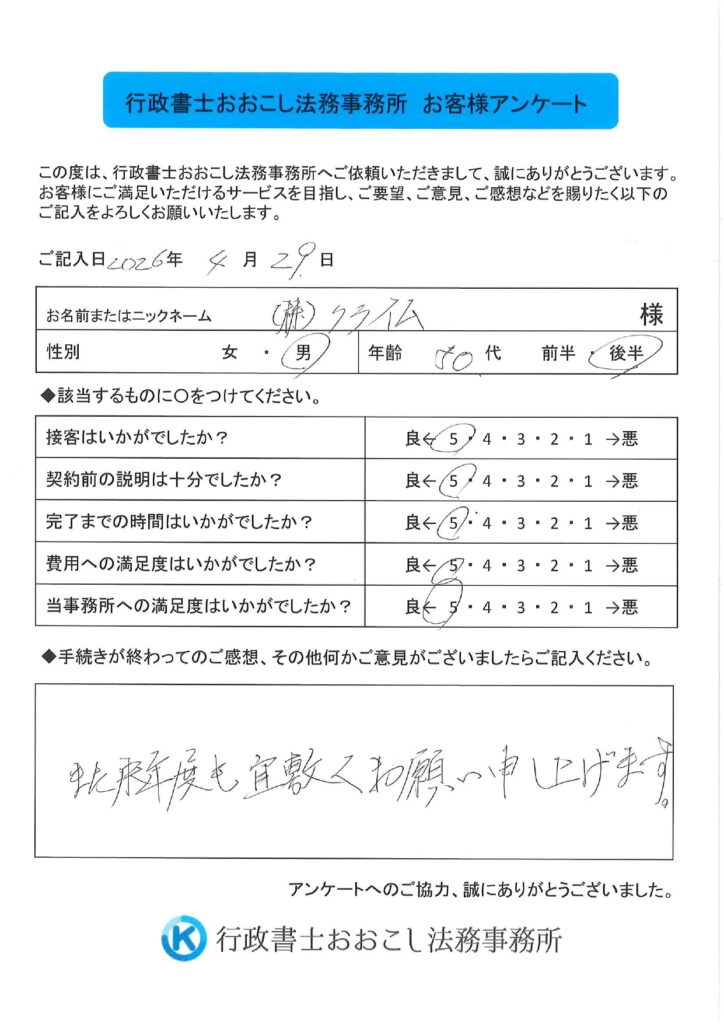 行政書士おおこし法務事務所 お客様アンケート
この度は、行政書士おおこし法務事務所へご依頼いただきまして、誠にありがとうございます。
お客様にご満足いただけるサービスを目指し、ご要望、ご意見、ご感想などを賜りたく以下の
ご記入をよろしくお願いいたします。
ご記入日2026年 4月29日
お名前またはニックネーム (株)クライム 様
性別 女・男 年齢 代 前半・後半
◆該当するものに〇をつけてください。
接客はいかがでしたか? 良←5・4・3・2・1→悪
契約前の説明は十分でしたか? 良←5・4・3・2・1→悪
完了までの時間はいかがでしたか? 良←5・4・3・2・1→悪
費用への満足度はいかがでしたか? 良←5・4・3・2・1→悪
当事務所への満足度はいかがでしたか? 良←5・4・3・2・1→悪
◆手続きが終わってのご感想、その他何かご意見がございましたらご記入ください。
また来年度も宜敷くお願い申し上げます。
アンケートへのご協力、誠にありがとうございました。
K 行政書士おおこし法務事務所